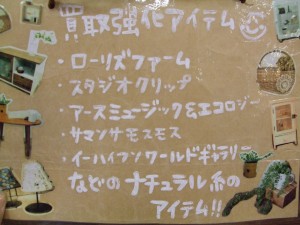 買取強化アイテム
・ローリズファーム
・スタジオクリップ
・アースミュージック&エコロジー
・サマンサモスモス
・イーハイフンワールドギャラリー
などのナチュラル系の
アイテム!!